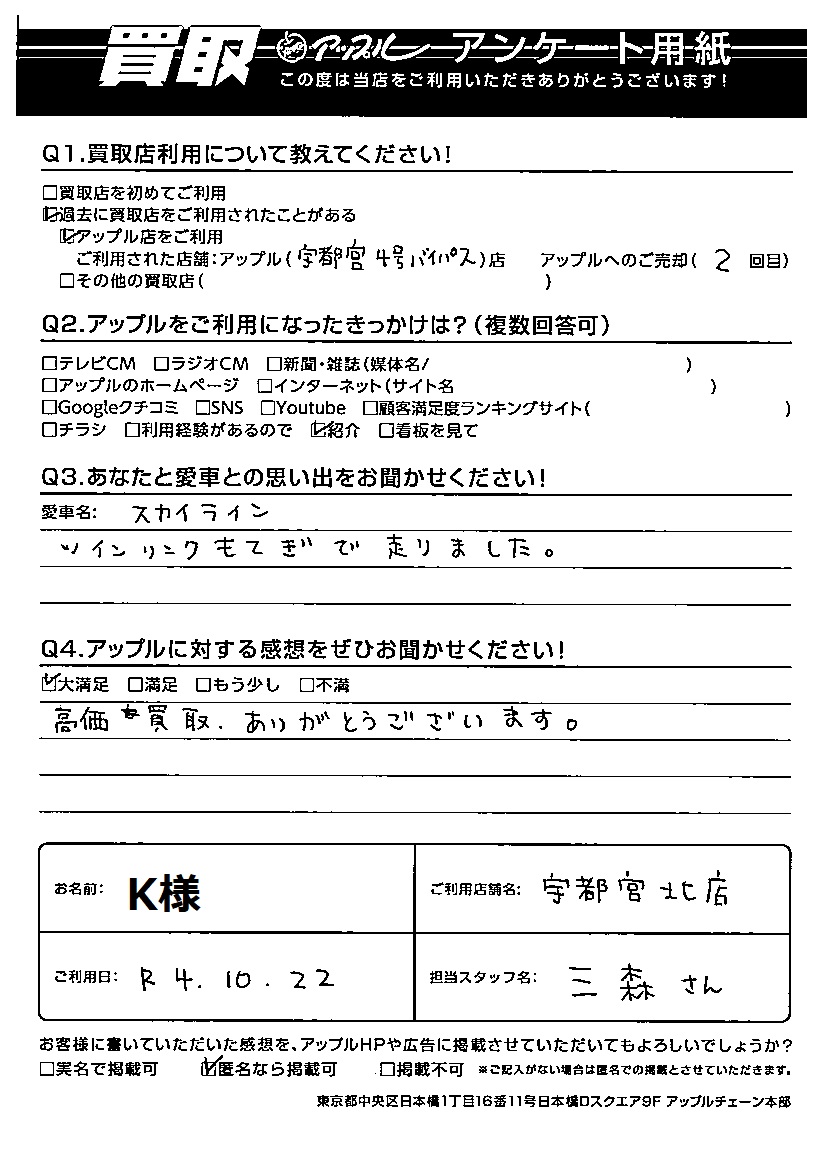 買取 アップル アンケート用紙
この度は当店をご利用いただきありがとうございます!
Q1.買取店利用について教えてください!
□買取店を初めてご利用
☑過去に買取店をご利用されたことがある
☑アップル店をご利用
ご利用された店舗:アップル(宇都宮4号バイパス)店 アップルへのご売却( 2 回目)
□その他の買取店( )
Q2.アップルをご利用になったきっかけは?(複数回答可)
□テレビCM □ラジオCM □新聞・雑誌(媒体名/ )
□アップルのホームページ □インターネット(サイト名 )
□Googleクチコミ □SNS □Youtube □顧客満足度ランキングサイト( )
□チラシ □利用経験があるので ☑紹介 □看板を見て
Q3.あなたと愛車との思い出をお聞かせください!
愛車名: スカイライン
ツインリンクもてぎで走りました。
Q4.アップルに対する感想をぜひお聞かせください!
☑大満足 □満足 □もう少し □不満
高価を買取、ありがとうございます。
お名前: K様 ご利用店舗名: 宇都宮北店
ご利用日: R4.10.22 担当スタッフ名: 三森さん
お客様に書いていただいた感想を、アップルHPや広告に掲載させていただいてもよろしいでしょうか?
□実名で掲載可 ☑匿名なら掲載可 □掲載不可 ※ご記入がない場合は匿名での掲載とさせていただきます。
東京都中央区日本橋1丁目16番11号日本橋Dスクエア9F アップルチェーン本部